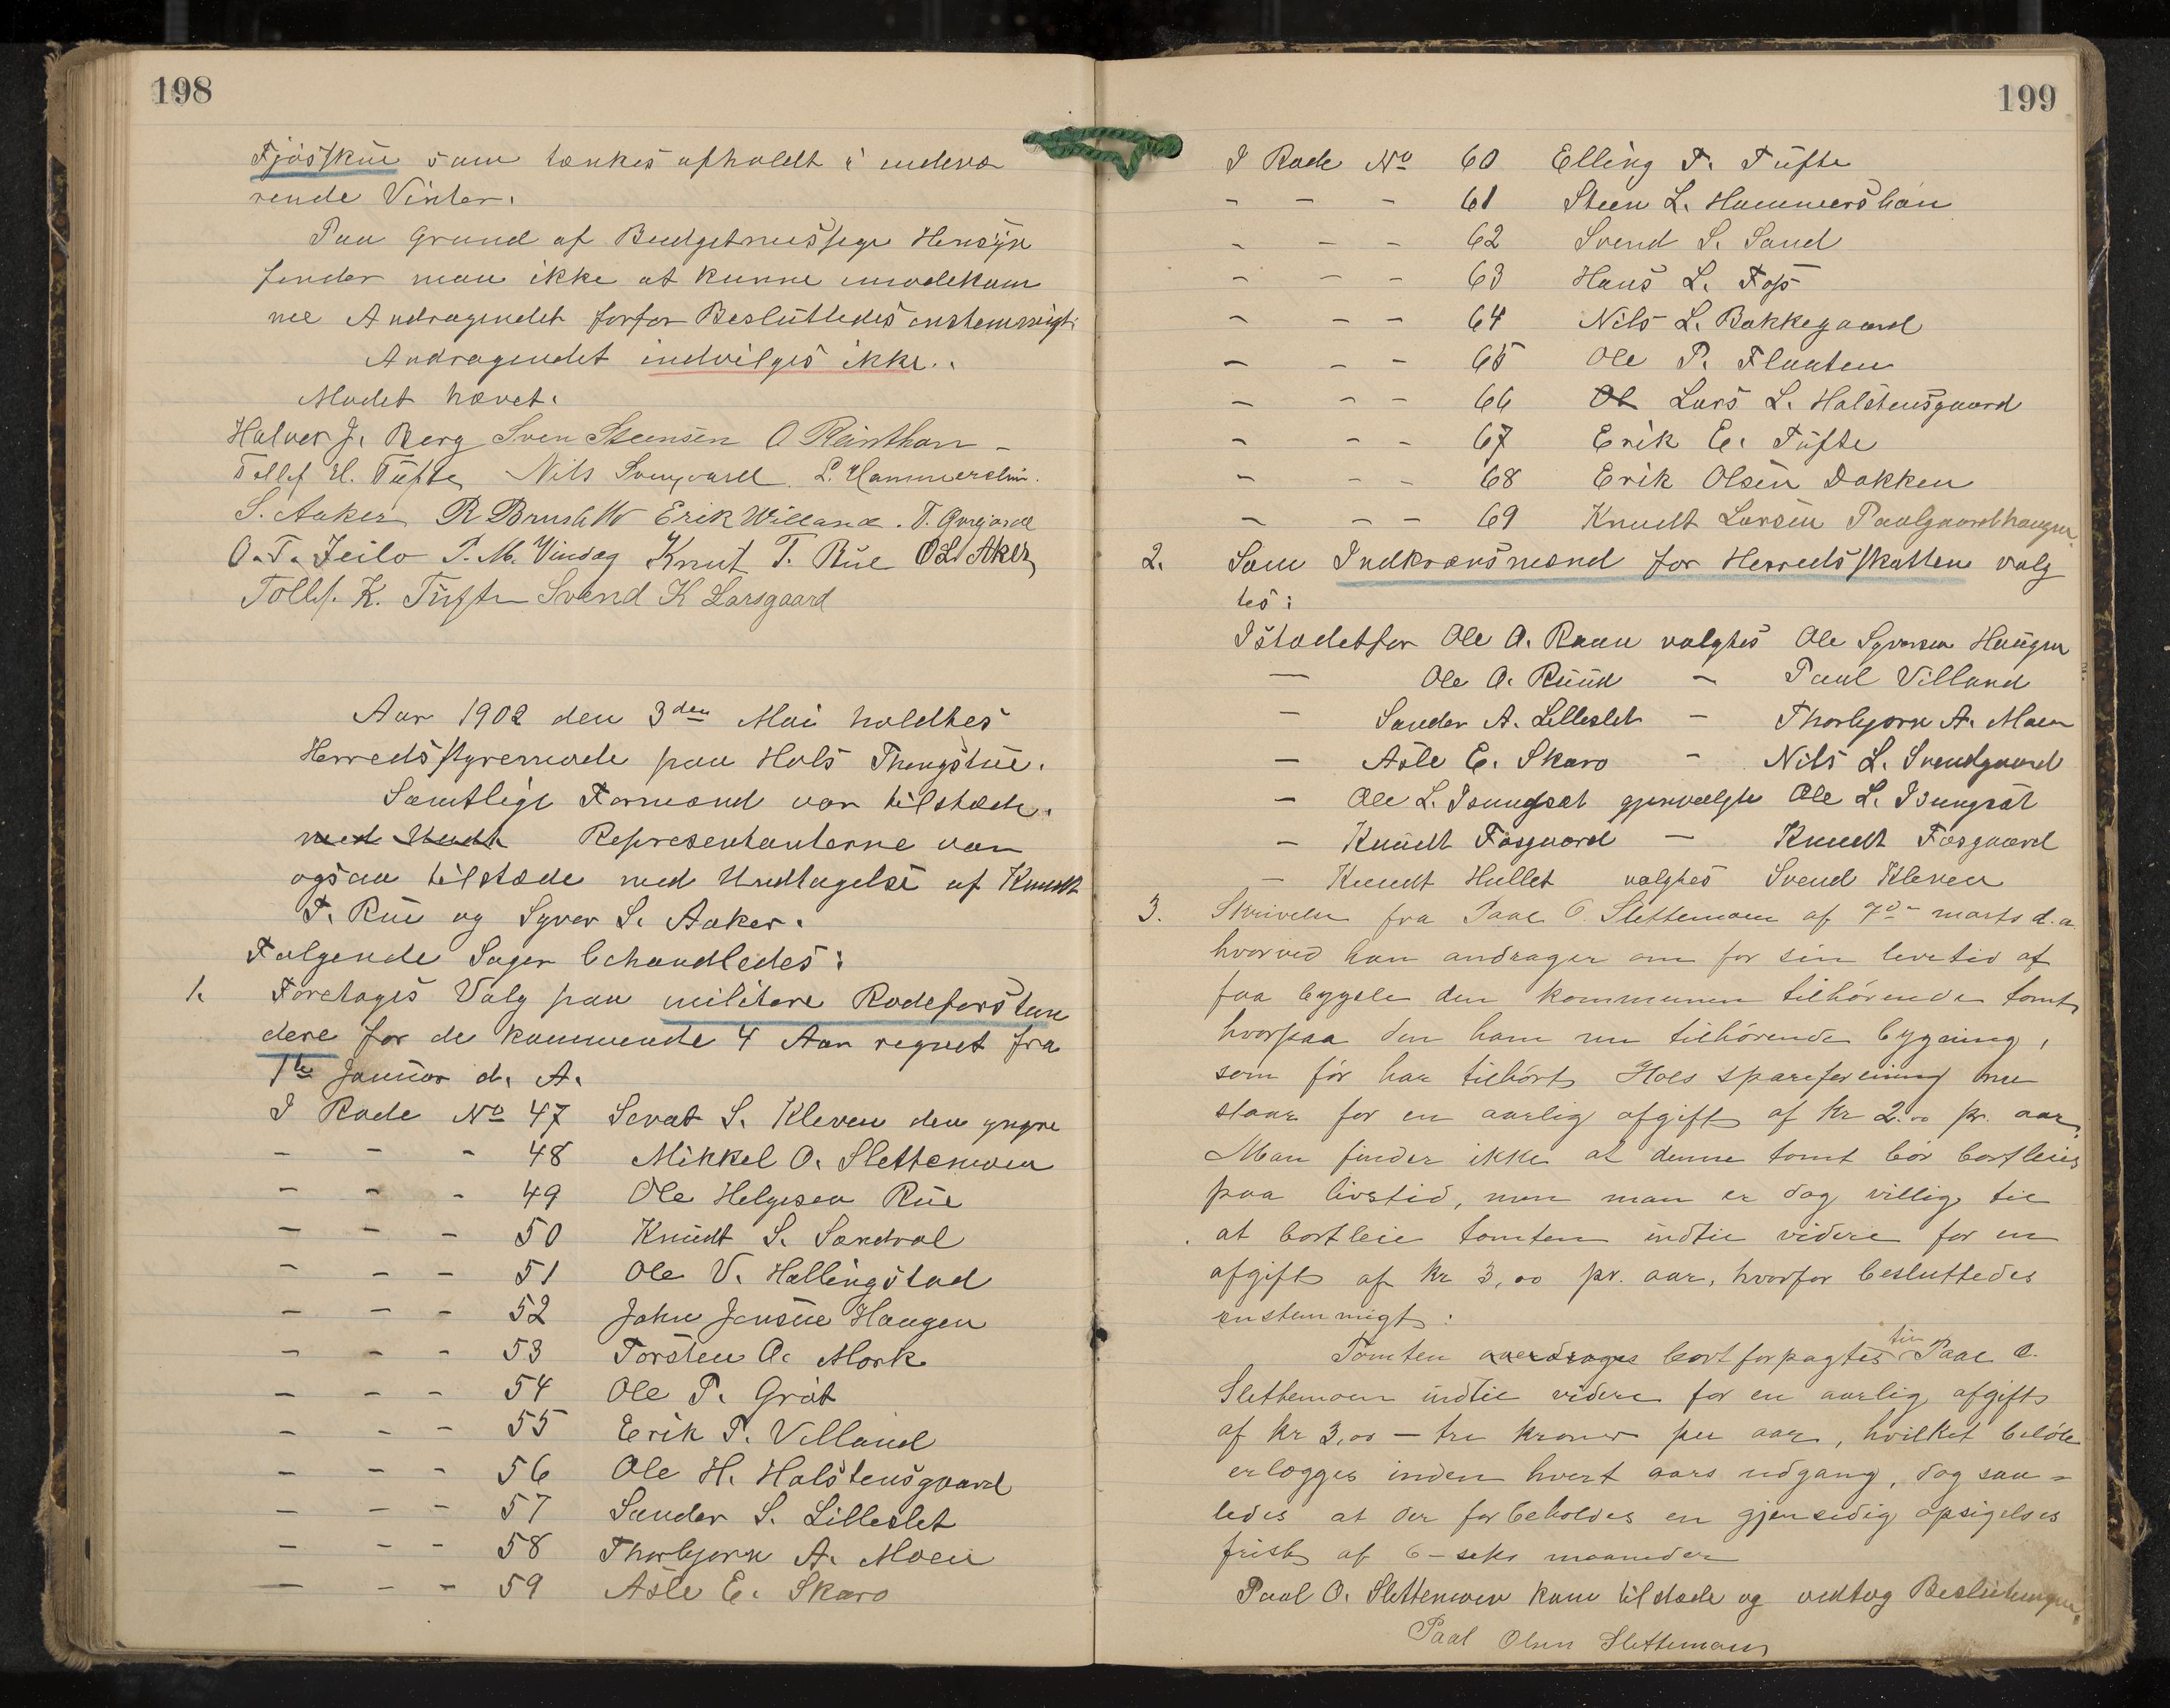 198
Fjøsskue som tænkes afholdt i indevæ
rende Vinter.
Paa Grund af Budgetmessige Hensyn
finder man ikke at kunne imødekom
me Andragendet forfor Besluttedes enstemmigt:
Andragendet indvilges ikke.
Mødet hævet.
Halvor J. Berg Sven Steensen O Reinthon
Tollef H. Tufte Nils Svengaard L. Hammersbøn.
S. Aaker Erik Villand. T.
O. T. Jeilo P. M. Vindeg Knut T. Rue O L Aker
Tollef. K. Tufte Svend K Larsgaard
Aar 1902 den 3den Mai holdtes
Herredsstyremøde paa Hols Thingstue.
Samtlige Formænd var tilstæde.
med Repræsentanterne var
ogsaa tilstæde med Undtagelse af Knudt
T. Rue og Syver S. Aaker.
Følgende Sager behandledes:
1. Foretages Valg paa militære Rodeforstan
dere for de kommende 4 Aar regnet fra
1ste Januar d. A.
I Rode No 47 Sevat S. Kleven den yngre
- - - 48 Mikkel O. Slettemoen
- - - 49 Ole Helgesen Rue
- - - 50 Knudt S. Sandvol
- - - 51 Ole V. Hallingstad
- - - 52 John Jensen Haugen
- - - 53 Torsten O. Mork
- - - 54 Ole P. Grøt
- - - 55 Erik P. Villand
- - - 56 Ole H. Halstensgaard
- - - 57 Sander S. Lilleslet
- - - 58 Thorbjørn A. Moen
- - - 59 Asle E. Skaro
199
I Rode No 60 Elling T. Tufte
- - - 61 Steen L. Hammersbøn
- - - 62 Svend S. Sand
- - - 63 Hans L. Foss
- - - 64 Nils L. Bakkegaard
- - - 65 Ole P. Flaaten
- - - 66 Ol Lars L. Halstensgaard
- - - 67 Erik E. Tufte
- - - 68 Erik Olsen Dokken
- - - 69 Knudt Larsen Paalgaardhaugen
2. Som Indkrævsmænd for Herredsskatten valg
tes:
Istædetfor Ole A. Raan valgtes Ole Syversen Haugen
- Ole A. Ruud - Paul Villand
- Sander A. Lilleslet - Thorbjørn A. Moen
- Asle E. Skaro - Nils L. Svendgaard
- Ole L. Isungset gjenvalgte Ole L. Isungset
- Knudt Fosgaard - Knudt Fosgaard
- Knudt Hullet valgtes Svend Kleven
3. Skrivelse fra Paal O. Slettemoen af 7de marts d. a.
hvorved han andrager om for sin levetid at
faa bygsle den kommunen tilhørende tomt,
hvorpaa den ham nu tilhørende bygning,
som før har tilhørt Hols spareforening nu
staar for en aarlig afgift af kr 2.00 pr. aar.
Man finder ikke at denne tomt bør bortleies
paa livstid, men man er dog villig til
at bortleie tomten indtil videre for en
afgift af kr 3,00 pr. aar, hvorfor besluttedes
enstemmigt:
Tomten overdrages bortforpagtes til Paal O.
Slettemoen indtil videre for en aarlig afgift
af kr 3,00 - tre kroner per aar, hvilket beløb
erlægges inden hvert aars udgang, dog saa-
ledes at der forbeholdes en gjensidig opsigelses
frist af 6 - seks maaneder
Paal O. Slettemoen kom tilstæde og vedtog Beslutningen.
Paal Olsen Slettemoen